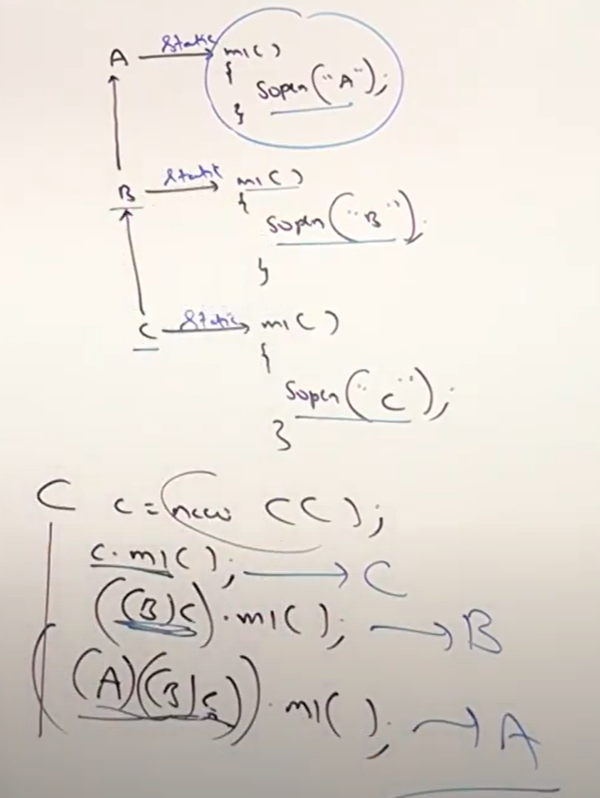 A static m1()
{
Sopln("A");
}
B static m1()
{
Sopln("B");
}
C static m1()
{
Sopln("C");
}
C c = new C();
c.m1(); C
((B)c).m1(); B
((A)((B)c)).m1(); A